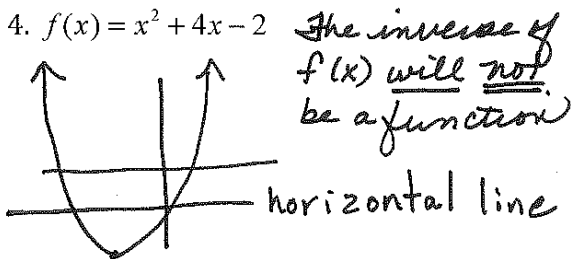 4. f(x) = x² + 4x − 2 The inverse of
f(x) will not
be a function
horizontal line